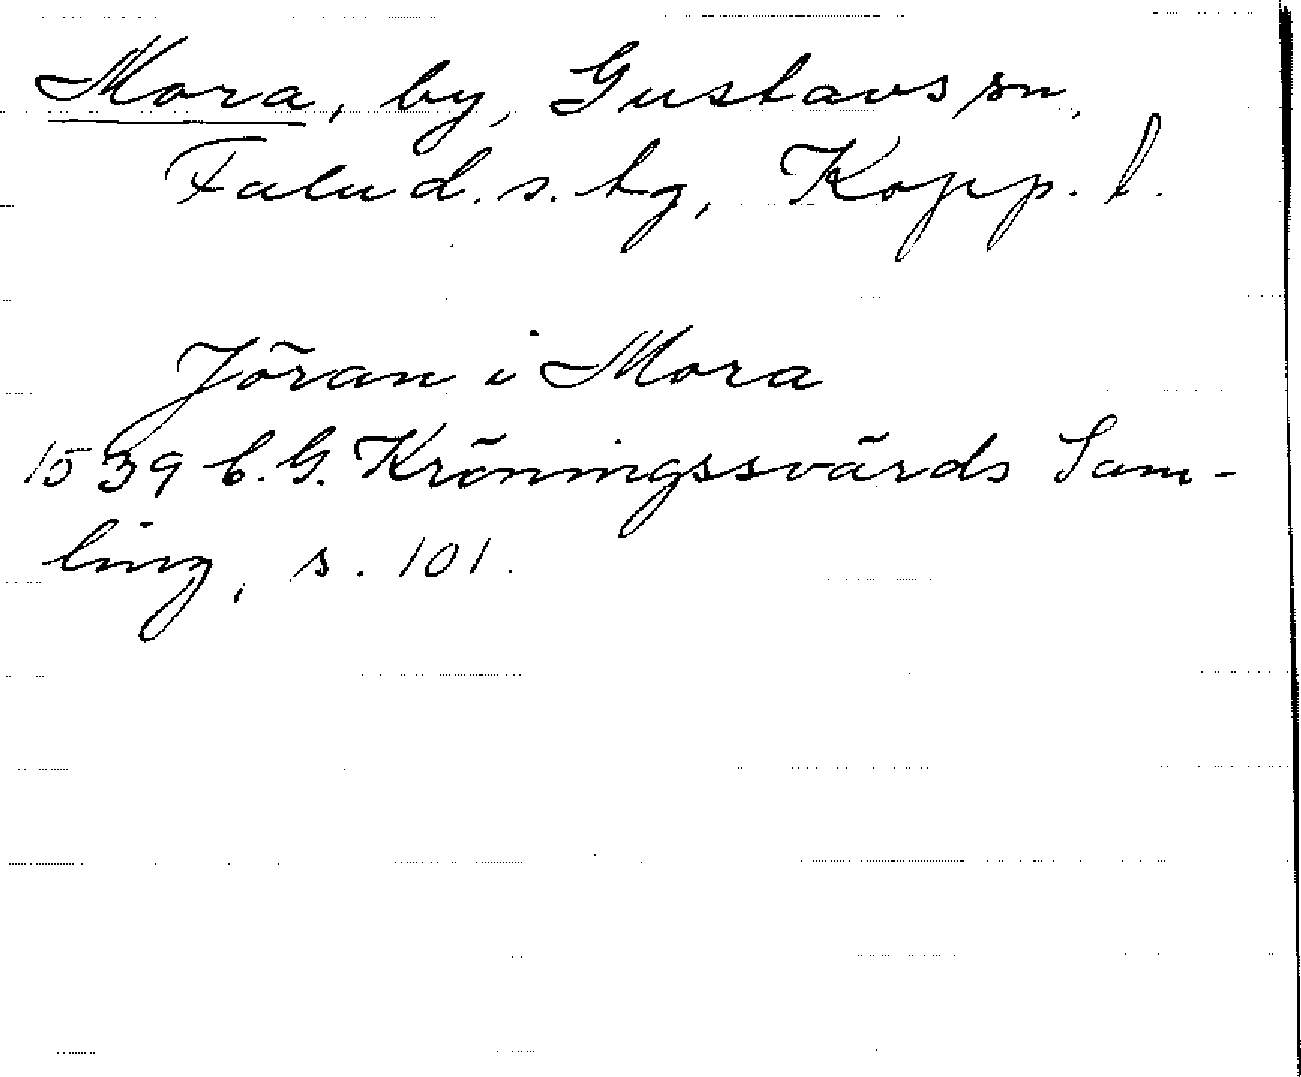 Mora, by, Gustavs sn,
Falu d. s. tg, Kopp. l.
Jöran i Mora
1539 C. G. Kröningssvärds Sam-
ling, s. 101.